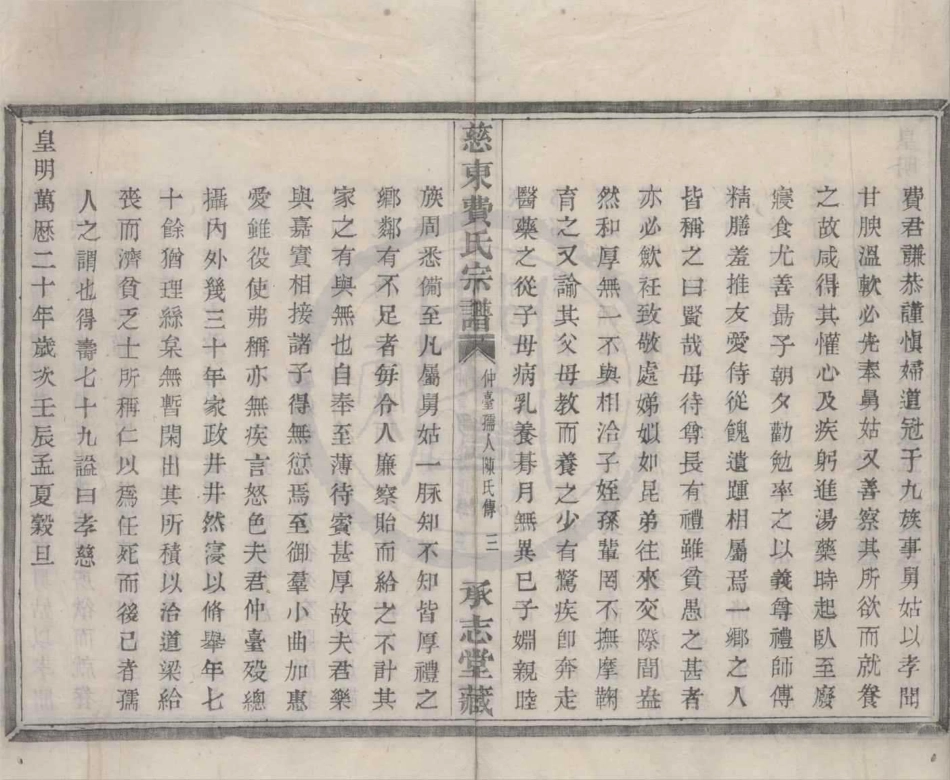 費君謙恭謹慎婦道冠于九族事舅姑以孝聞
甘腴溫軟必先奉舅姑又善察其所欲而就養
之故咸得其懽心及疾躬進湯藥時起臥至廢
寢食尤善勗子朝夕勸勉率之以義尊禮師傅
精膳羞推友愛待從餽遺踵相屬焉一鄉之人
皆稱之曰賢哉母待尊長有禮雖貧愚之甚者
亦必歛衽致敬處娣姒如昆弟往來交際間盎
然和厚無一不與相洽子姪孫輩罔不撫摩鞠
育之又諭其父母教而養之少有驚疾卽奔走
醫藥之從子母病乳養朞月無異已子婣親睦
慈東費氏宗譜
仲臺孺人陳氏傳
三
承志堂藏
族周悉備至凡屬舅姑一脉知不知皆厚禮之
鄉鄰有不足者每令人廉察貽而給之不計其
家之有與無也自奉至薄待賓甚厚故夫君樂
與嘉賓相接諸子得無愆焉至御羣小曲加惠
愛雖役使弗稱亦無疾言怒色夫君仲臺歿總
攝內外幾三十年家政井井然寖以脩舉年七
十餘猶理絲枲無暫閑出其所積以治道梁給
喪而濟貧乏士所稱仁以爲任死而後已者孺
人之謂也得壽七十九諡曰孝慈
皇明萬歷二十年歲次壬辰孟夏穀旦